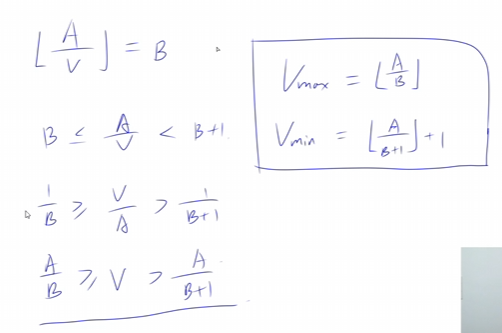 ⌊A/V⌋ = B
B ≤ A/V < B+1
1/B ≥ V/A > 1/(B+1)
A/B ≥ V > A/(B+1)
Vmax = ⌊A/B⌋
Vmin = ⌊A/(B+1)⌋ + 1